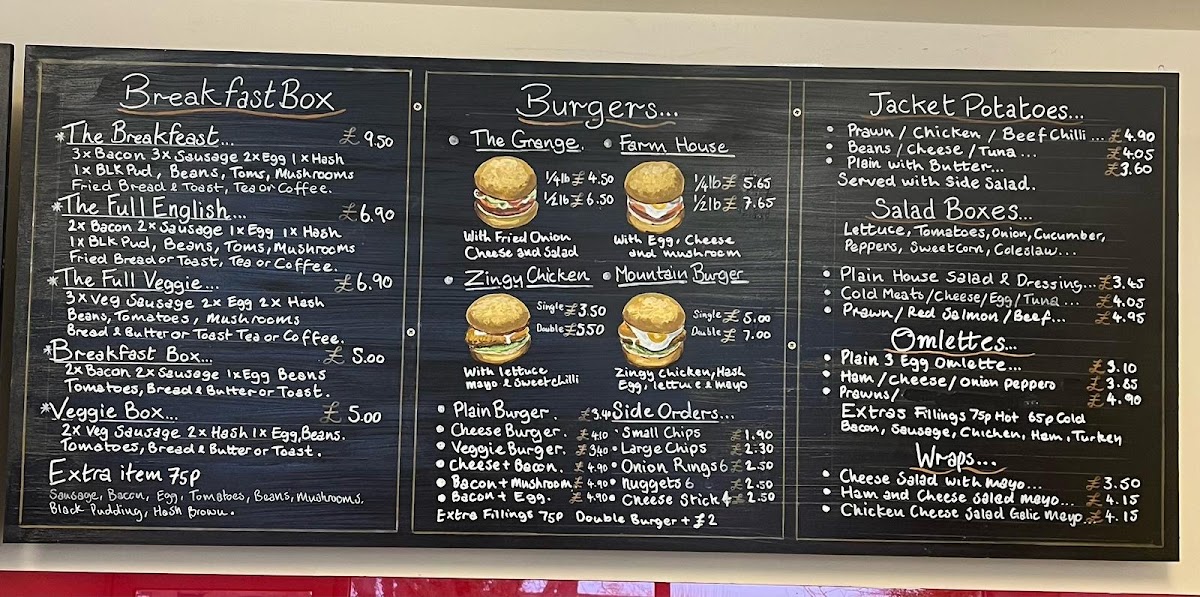 Breakfast Box
*The Breakfeast... £9.50
3x Bacon 3x Sausage 2x Egg 1x Hash
1x BLK Pud, Beans, Toms, Mushrooms
Fried Bread & Toast, Tea or Coffee.
*The Full English... £6.90
2x Bacon 2x Sausage 1x Egg 1x Hash
1x BLK Pud, Beans, Toms, Mushrooms
Fried Bread or Toast, Tea or Coffee.
*The Full Veggie... £6.90
3x Veg Sausage 2x Egg 2x Hash
Beans, Tomatoes, Mushrooms
Bread & Butter or Toast Tea or Coffee.
*Breakfast Box... £5.00
2x Bacon 2x Sausage 1x Egg Beans
Tomatoes, Bread & Butter or Toast.
*Veggie Box... £5.00
2x Veg Sausage 2x Hash 1x Egg, Beans.
Tomatoes, Bread & Butter or Toast.
Extra item 75p
Sausage, Bacon, Egg, Tomatoes, Beans, Mushrooms.
Black Pudding, Hash Brown.
Burgers...
• The Grange.
1/4lb £4.50
1/2lb £6.50
With Fried Onion
Cheese and Salad
• Farm House
1/4lb £5.65
1/2lb £7.65
With Egg, Cheese
and mushroom
• Zingy Chicken
Single £3.50
Double £5.50
With lettuce
mayo & Sweetchilli
• Mountain Burger
Single £5.00
Double £7.00
Zingy Chicken, Hash
Egg, lettuce & mayo
• Plain Burger. £3.40
• Cheese Burger. £4.10
• Veggie Burger. £3.40
• Cheese + Bacon. £4.90
• Bacon + Mushroom £4.90
• Bacon + Egg. £4.90
Side Orders...
• Small Chips £1.90
• Large Chips £2.30
• Onion Rings 6 £2.50
• Nuggets 6 £2.50
• Cheese Stick 4 £2.50
Extra Fillings 75p Double Burger + £2
Jacket Potatoes...
• Prawn / Chicken / Beef Chilli... £4.90
• Beans / Cheese / Tuna... £4.05
• Plain with Butter... £3.60
Served with Side Salad.
Salad Boxes...
Lettuce, Tomatoes, Onion, Cucumber,
Peppers, Sweetcorn, Coleslaw...
• Plain House Salad & Dressing... £3.45
• Cold Meats / Cheese / Egg / Tuna... £4.05
• Prawn / Red Salmon / Beef... £4.95
Omlettes...
• Plain 3 Egg Omlette... £3.10
• Ham / Cheese / Onion peppers £3.85
• Prawns / £4.90
Extras Fillings 75p Hot 65p Cold
Bacon, Sausage, Chicken, Ham, Turkey
Wraps...
• Cheese Salad with mayo... £3.50
• Ham and Cheese Salad mayo... £4.15
• Chicken Cheese Salad Galic Mayo £4.15